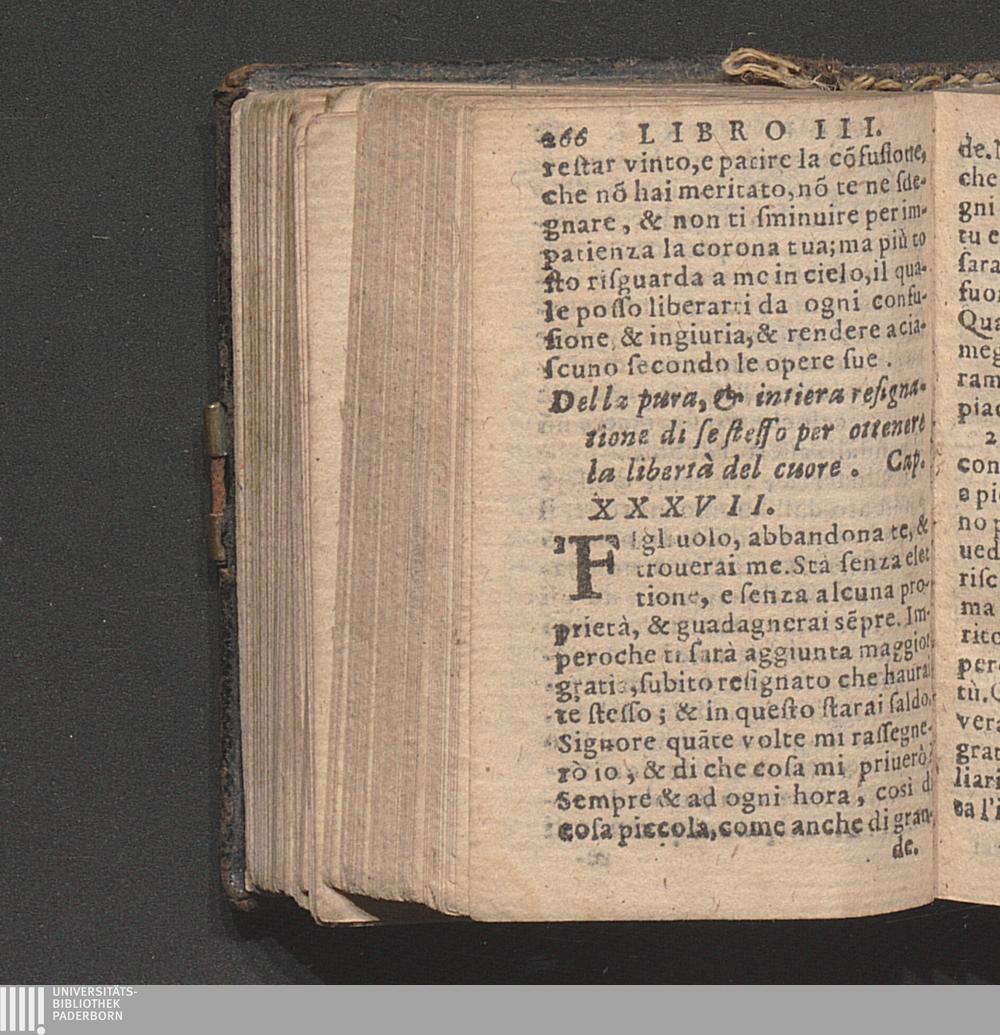 266 LIBRO III.
reſtar vinto, e patire la cõfuſione,
che nõ hai meritato, nõ te ne ſde-
gnare, & non ti ſminuire per im-
patienza la corona tua; ma più to
ſto riſguarda a me in cielo, il qua-
le poſſo liberarti da ogni confu-
ſione, & ingiuria, & rendere a cia-
ſcuno ſecondo le opere ſue.
Della pura, & intiera reſigna-
tione di ſe ſteſſo per ottenere
la libertà del cuore. Cap.
XXXVII.
1 Figliuolo, abbandona te, &
trouerai me. Stà ſenza elet
tione, e ſenza alcuna pro-
prietà, & guadagnerai sẽpre. Im-
peroche ti ſarà aggiunta maggior
gratia, ſubito reſignato che haurai
te ſteſſo; & in queſto ſtarai ſaldo.
Signore quãte volte mi raſſegne-
rò io, & di che coſa mi priuerò?
Sempre & ad ogni hora, così di
coſa piccola, come anche di gran-
de.
de.
che
gni
tu e
ſara
fuor
Qua
meg
ram
piac
2
con
e pi
no p
ued
riſc
ma
rito
per
tù.
vera
grat
liari
ca l'i
UNIVERSITÄTS-
BIBLIOTHEK
PADERBORN